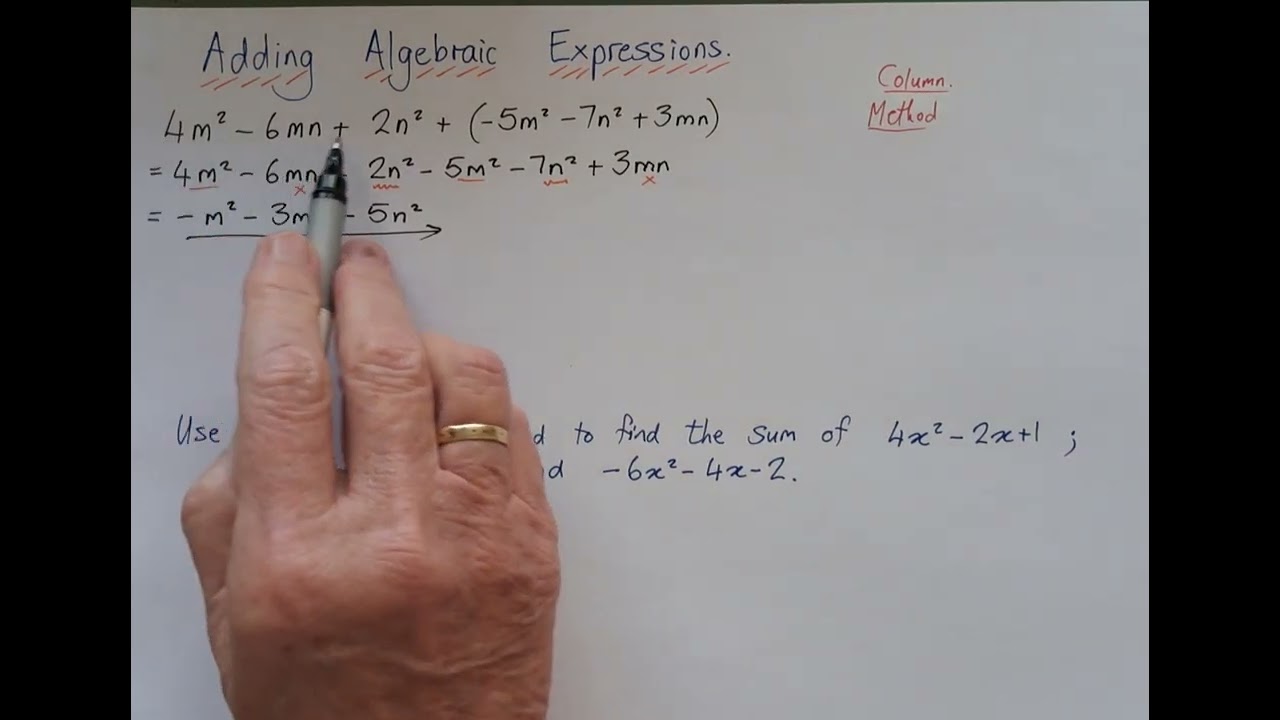 Adding Algebraic Expressions.
Column.
Method
4m² - 6mn + 2n² + (-5m² - 7n² + 3mn)
= 4m² - 6mn 2n² - 5m² - 7n² + 3mn
= - m² - 3m - 5n²
Use to find the sum of 4x² - 2x + 1 ;
-6x² - 4x - 2.